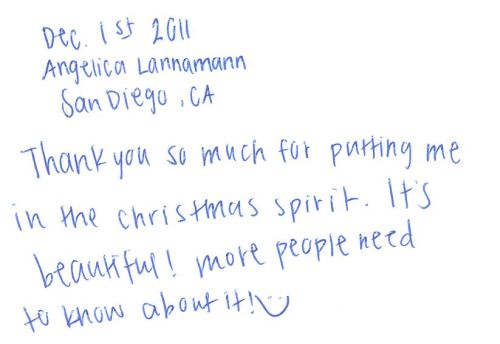 Dec. 1st 2011
Angelica Lannamann
San Diego, CA
Thank you so much for putting me
in the christmas spirit. It's
beautiful! more people need
to know about it!